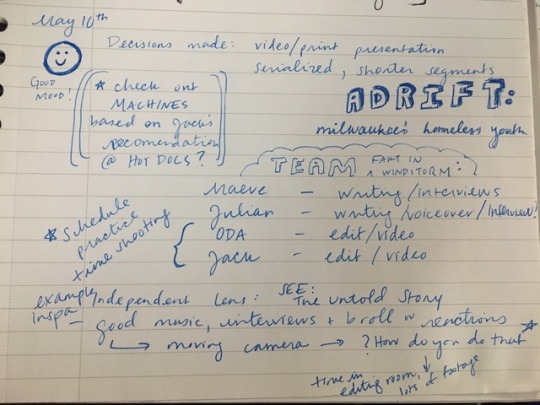 May 10th
Decisions made: video/print presentation
serialized, shorter segments
GOOD
MOOD!
* check out
MACHINES
based on Jack's
recomendation
@ HOT DOCS?
ADRIFT:
milwaukee's homeless youth
TEAM FART IN
A WINDSTORM:
Maeve - writing/interviews
Julian - writing/voiceover/interviews?
ODA - edit/video
Jack - edit/video
* schedule
practice
time shooting
example
inspo
Independent Lens: SEE: The Untold Story
- good music, interviews + b roll w reactions
moving camera → ? How do you do that *
time in
editing room,
lots of footage